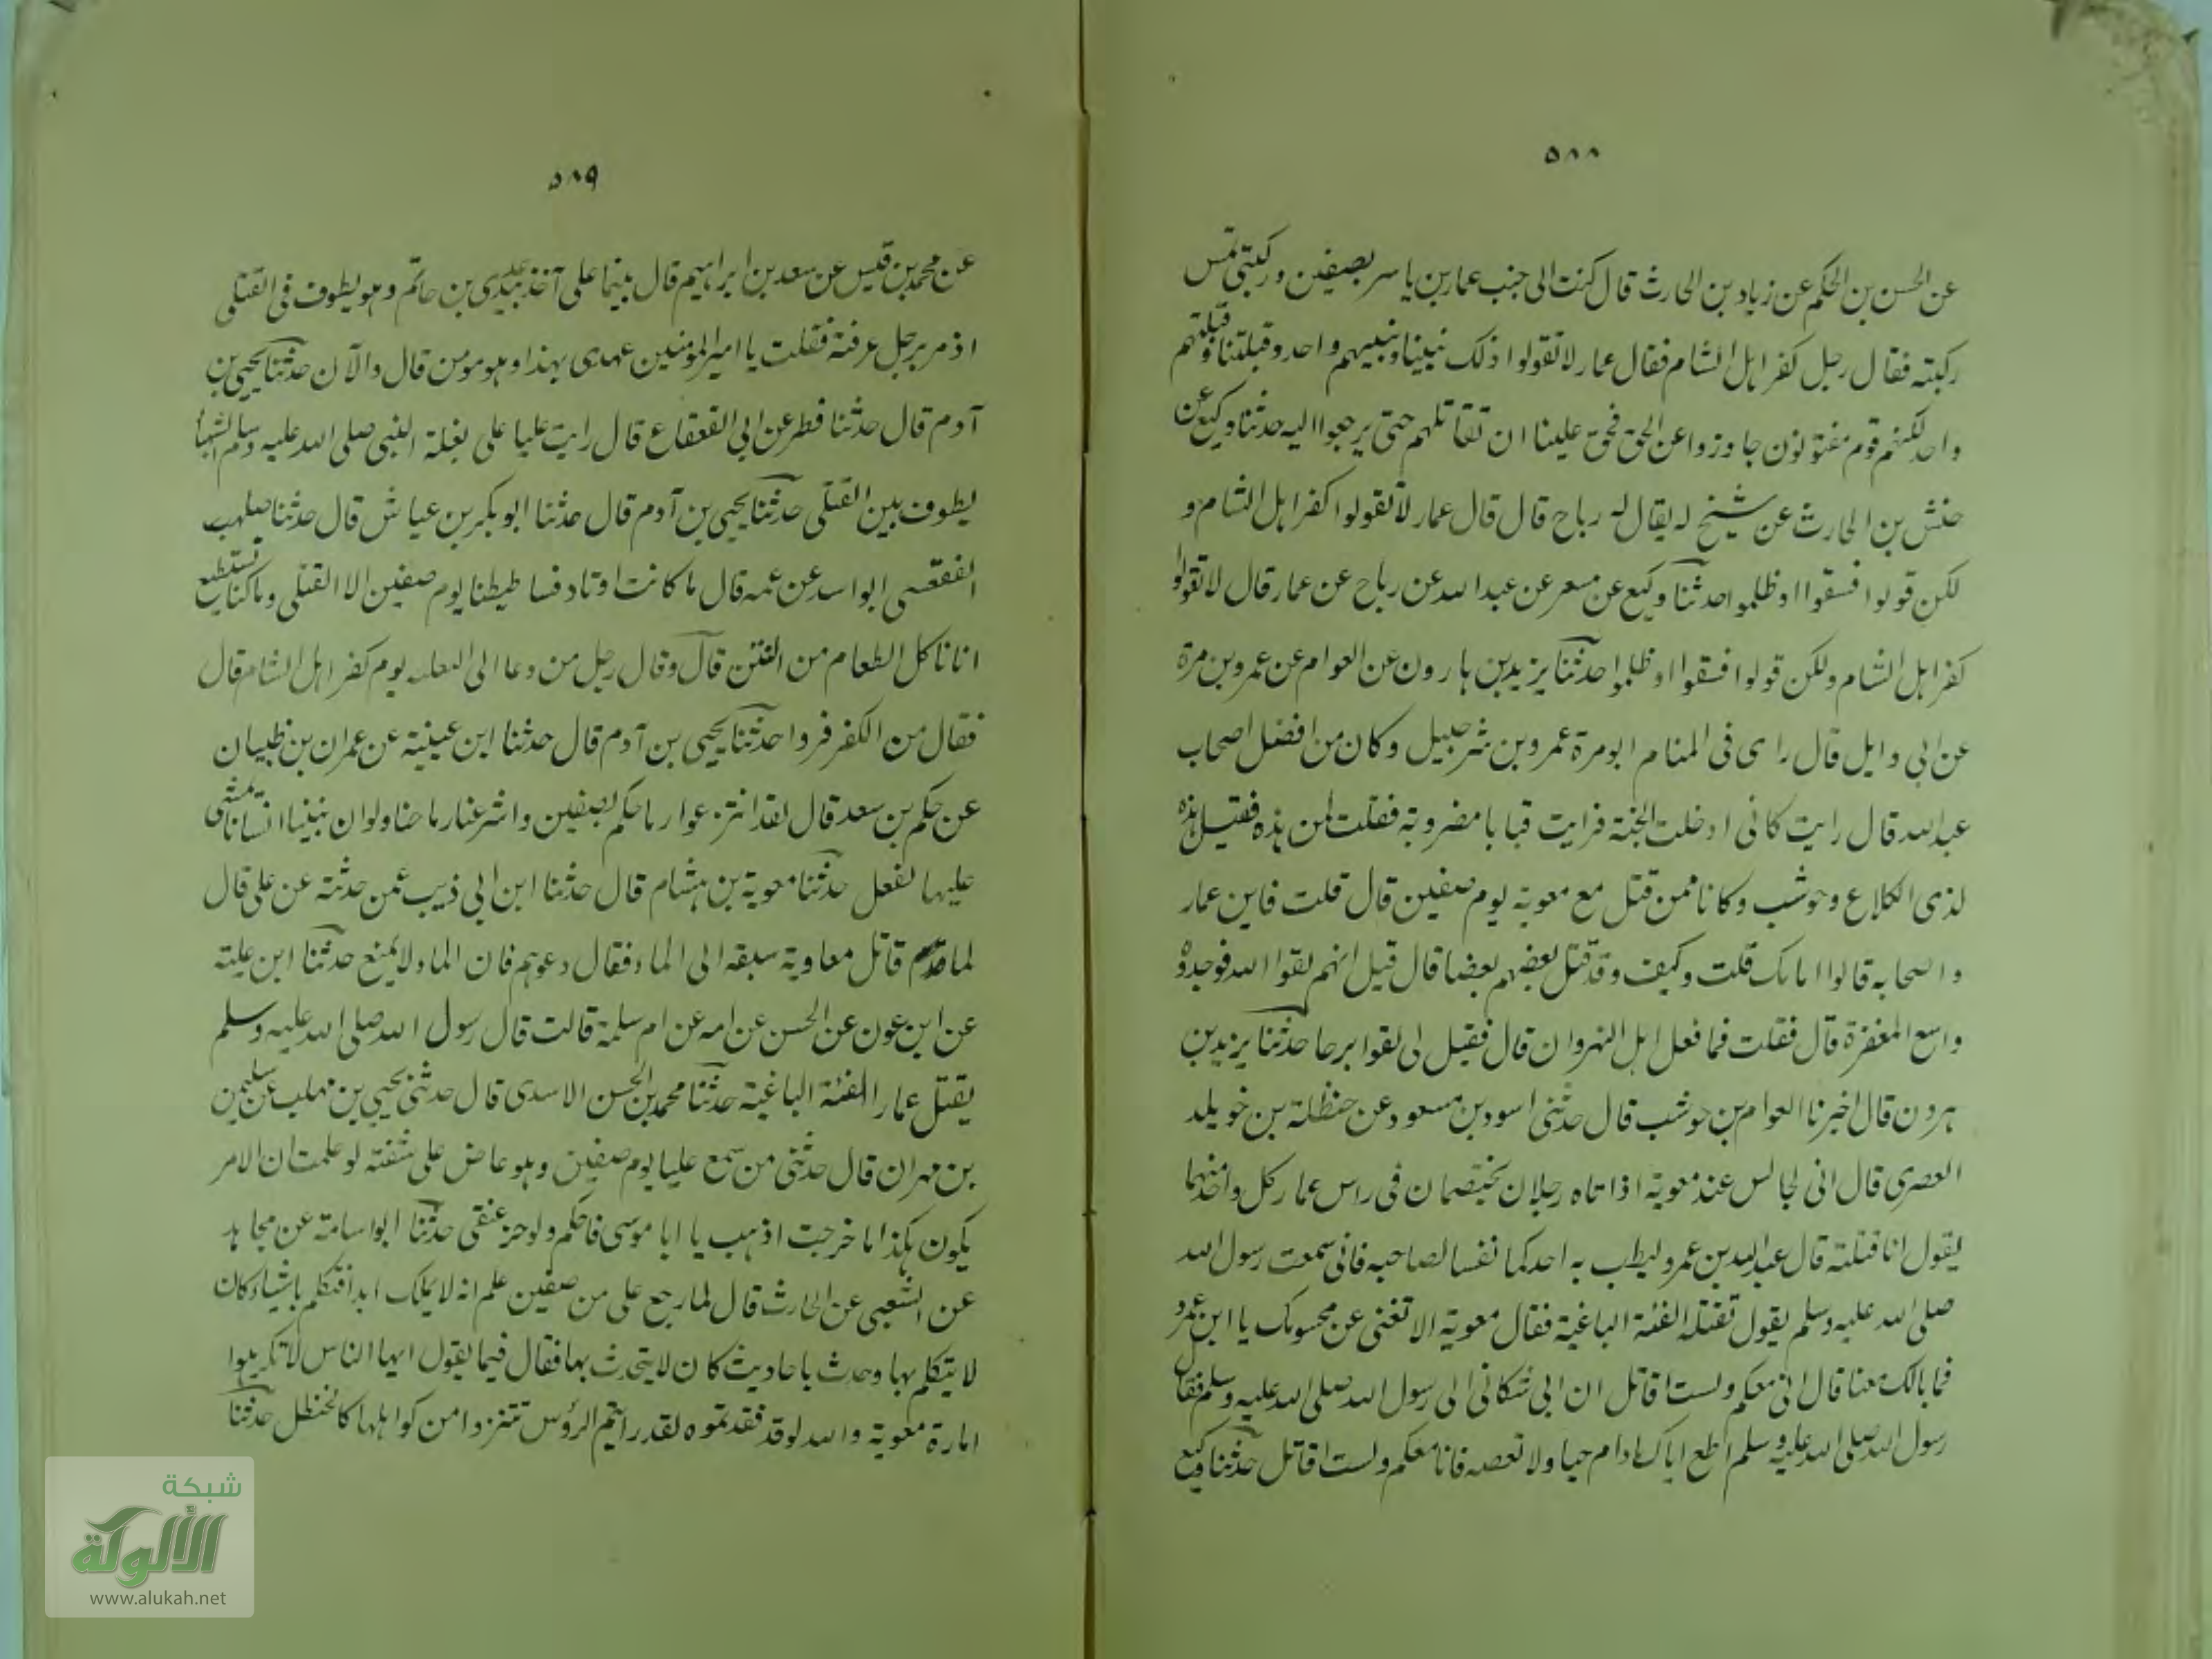 ٥٨٨
عن الحسن بن الحكم عن زياد بن الحارث قال كنت الى جنب عمار بن ياسر بصفين وركبتي تمس
ركبته فقال رجل كفر اهل الشام فقال عمار لا تقولوا ذلك نبينا ونبيهم واحد وقبلتنا وقبلتهم
واحد لكنهم قوم مفتونون جاوزوا عن الحق فحق علينا ان نقاتلهم حتى يرجعوا اليه حدثنا وكيع عن
حنش بن الحارث عن شيخ له يقال له رباح قال قال عمار لا تقولوا كفر اهل الشام و
لكن قولوا فسقوا او ظلموا حدثنا وكيع عن مسعر عن عبد الله عن رباح عن عمار قال لا تقولوا
كفر اهل الشام ولكن قولوا فسقوا او ظلموا حدثنا يزيد بن هارون عن العوام عن عمرو بن مرة
عن ابي وايل قال راى فى المنام ابو مرة عمرو بن شرحبيل وكان من افضل اصحاب
عبد الله قال رايت كانى ادخلت الجنة فرايت قبابا مضروبة فقلت لمن هذه فقيل هذه
لذى الكلاع وحوشب وكانا ممن قتل مع معوية يوم صفين قال قلت فاين عمار
واصحابه قالوا امامك قلت وكيف وقد قتل بعضهم بعضا قال قيل انهم لقوا الله فوجدوه
واسع المغفرة قال فقلت فما فعل اهل النهروان قال فقيل لى لقوا برحا حدثنا يزيد بن
هرون قال اخبرنا العوام بن حوشب قال حدثنى اسود بن مسعود عن حنظلة بن خويلد
العصرى قال انى لجالس عند معوية اذا تاه رجلان يختصمان فى راس عمار كل واحد منهما
يقول انا قتلته قال عبد الله بن عمرو ليطب به احدكما نفسا لصاحبه فانى سمعت رسول الله
صلى الله عليه وسلم يقول تقتله الفئة الباغية فقال معوية الا تغنى عن مجنونك يا ابن عمرو
فما بالك معنا قال انى معكم ولست اقاتل ان ابى شكانى الى رسول الله صلى الله عليه وسلم فقال
رسول الله صلى الله عليه وسلم اطع اباك ما دام حيا ولا تعصه فانا معكم ولست اقاتل حدثنا وكيع
٥٨٩
عن محمد بن قيس عن سعد بن ابراهيم قال بينما على آخذ بيد عدى بن حاتم وهو يطوف فى القتلى
اذ مر برجل عرفته فقلت يا امير المومنين عهدى بهذا وهو مومن قال والآن حدثنا يحيى بن
آدم قال حدثنا فطر عن ابى القعقاع قال رايت عليا على بغلة النبى صلى الله عليه وسلم الشهبا
يطوف بين القتلى حدثنا يحيى بن آدم قال حدثنا ابو بكر بن عياش قال حدثنا صلهب
الفقعسى ابو اسد عن عمه قال ما كانت اوتاد فساطيطنا يوم صفين الا القتلى وما كنا نستطيع
ان ناكل الطعام من النتن قال وقال رجل من دعا الى البغلة يوم كفر اهل الشام قال
فقال من الكفر فروا حدثنا يحيى بن آدم قال حدثنا ابن عيينة عن عمران بن ظبيان
عن حكم بن سعد قال لقد اشرعوا رماحكم بصفين واشرعنا رماحنا ولو ان بيننا انسانا يمشى
عليها لفعل حدثنا معوية بن هشام قال حدثنا ابن ابى ذيب عمن حدثه عن على قال
لما قاتل معاوية سبقه الى الماء فقال دعوهم فان الماء لا يمنع حدثنا ابن علية
عن ابن عون عن الحسن عن امه عن ام سلمة قالت قال رسول الله صلى الله عليه وسلم
يقتل عمارا الفئة الباغية حدثنا محمد بن الحسن الاسدى قال حدثنى يحيى بن مهلب عن سليمن
بن مهران قال حدثنى من سمع عليا يوم صفين وهو عاض على شفته لو علمت ان الامر
يكون هكذا ما خرجت اذهب يا ابا موسى فاحكم ولو حز عنقى حدثنا ابو اسامة عن مجاهد
عن الشعبى عن الحارث قال لما رجع على من صفين علم انه لا يملك ابدا فتكلم باشياء كان
لا يتكلم بها وحدث باحاديث كان لا يتحدث بها فقال فيما يقول ايها الناس لا تكرهوا
امارة معوية والله لو قد فقدتموه لقد رايتم الرؤس تنزو من كواهلها كالحنظل حدثنا
شبكة
الألوكة
www.alukah.net